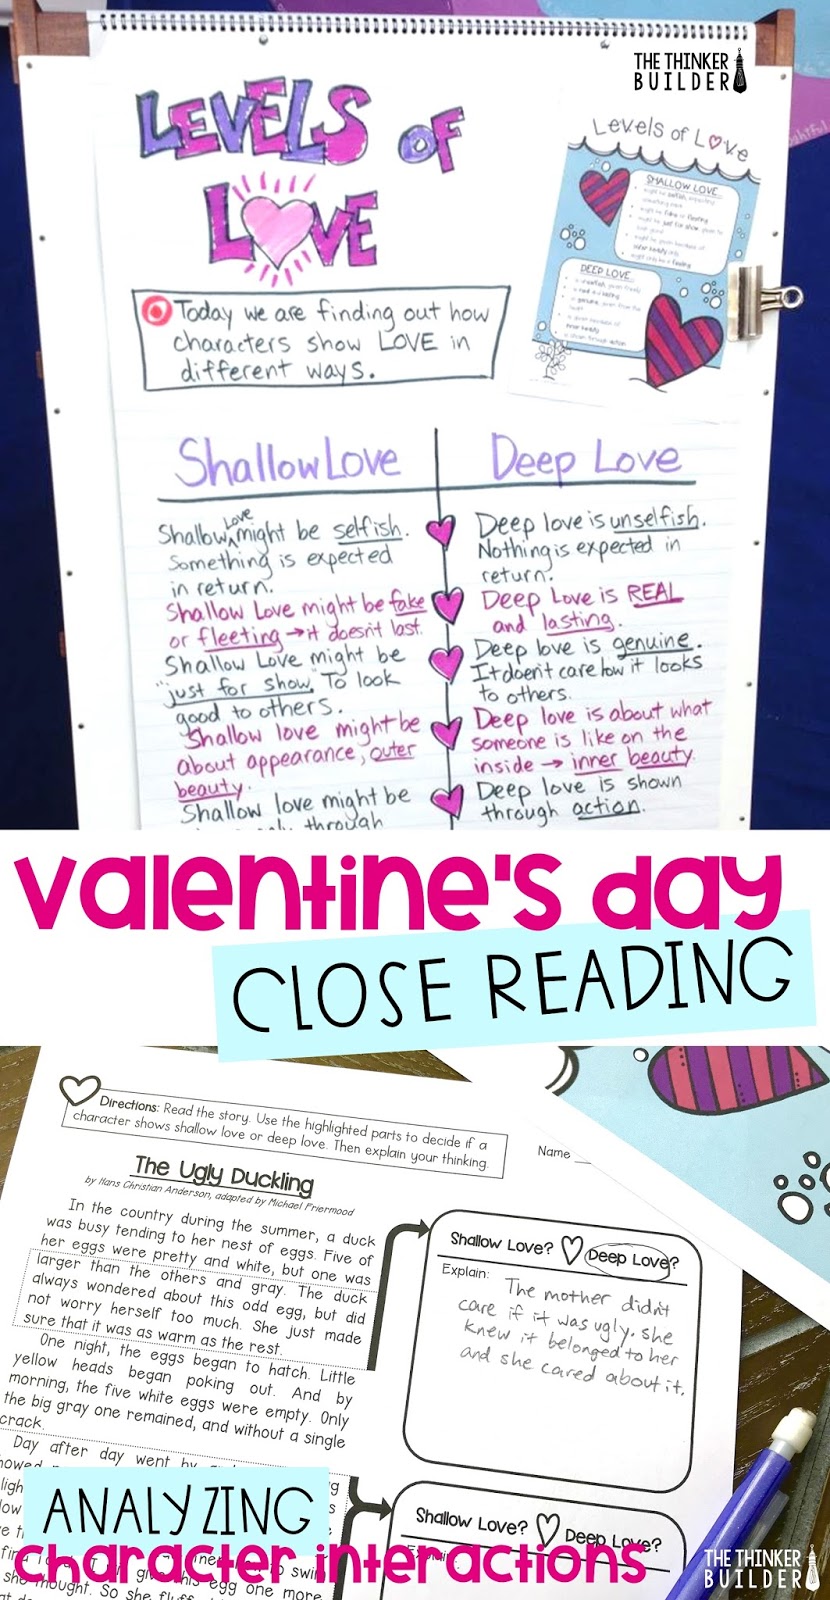 THE THINKER
BUILDER
LEVELS OF
LOVE
Today we are finding out how
characters show LOVE in
different ways.
Levels of Love
SHALLOW LOVE
DEEP LOVE
Shallow Love
Shallow Love might be selfish.
Something is expected
in return.
Shallow Love might be fake
or fleeting → it doesn't last.
Shallow Love might be
"just for show." To look
good to others.
Shallow love might be
about appearance, outer
beauty.
Shallow love might be
through
Deep Love
Deep love is unselfish.
Nothing is expected in
return.
Deep Love is REAL
and lasting.
Deep love is genuine.
It doen't care how it looks
to others.
Deep love is about what
someone is like on the
inside → inner beauty.
Deep love is shown
through action.
valentine's day
CLOSE READING
Directions: Read the story. Use the highlighted parts to decide if a
character shows shallow love or deep love. Then explain your thinking.
Name
The Ugly Duckling
by Hans Christian Anderson, adapted by Michael Friermood
In the country during the summer, a duck
was busy tending to her nest of eggs. Five of
her eggs were pretty and white, but one was
larger than the others and gray. The duck
always wondered about this odd egg, but did
not worry herself too much. She just made
sure that it was as warm as the rest.
One night, the eggs began to hatch. Little
yellow heads began poking out. And by
morning, the five white eggs were empty. Only
the big gray one remained, and without a single
crack.
Day after day went by
Shallow Love? Deep Love?
Explain:
The mother didn't
care if it was ugly. She
knew it belonged to her
and she cared about it.
Shallow Love? Deep Love?
ANALYZING
character interactions
this egg one more
thought. So she
THE THINKER
BUILDER